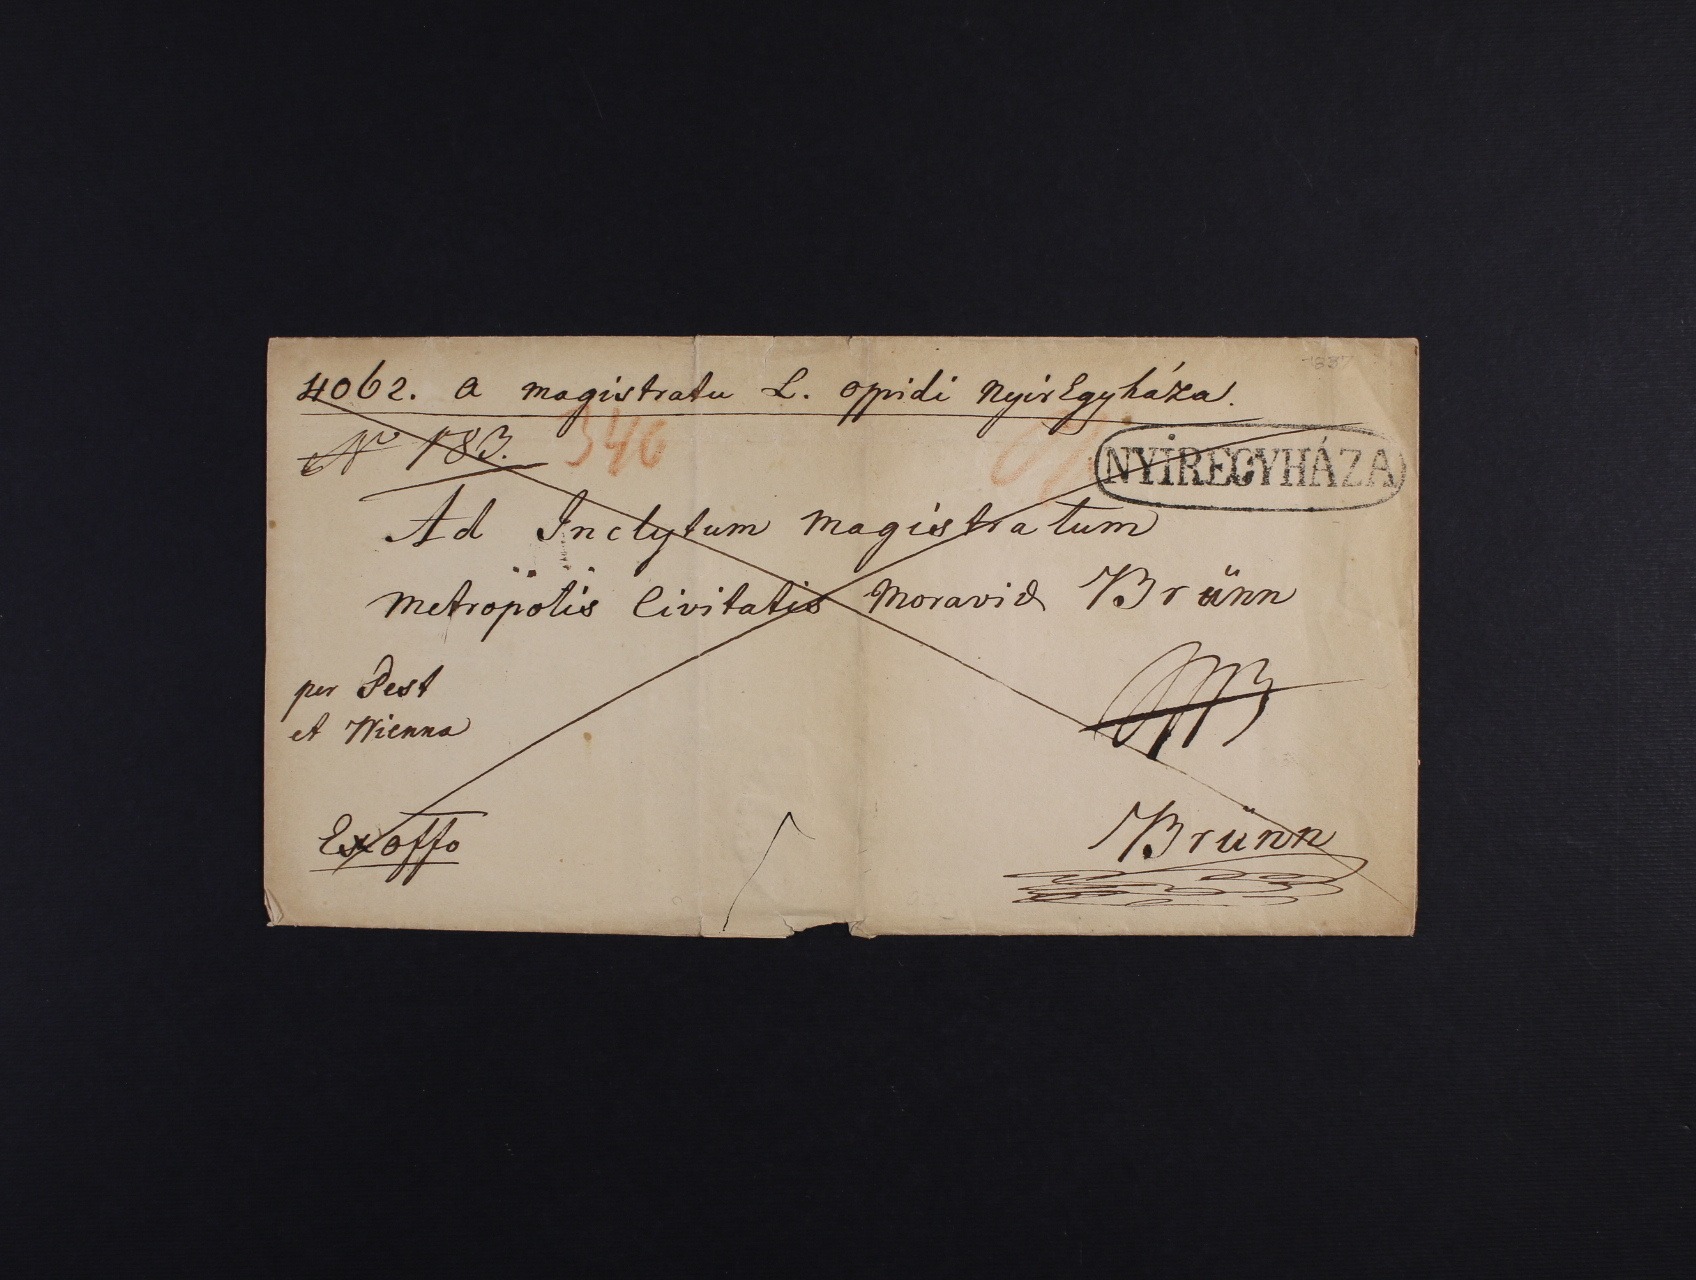 4062. a magistratu L. oppidi NyirEgyháza.
No 183. 346
NYIREGYHÁZA
Ad Inclytum Magistratum
Metropolis Civitatis Moraviæ Brünn
per Pest
et Wienna
Ex offo
Brünn